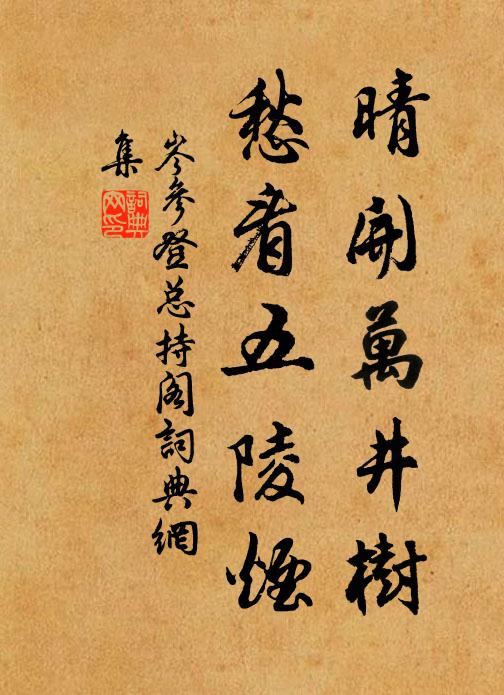 晴開萬井樹
愁看五陵煙
岑參登总持阁詞典網
集
詞典
网印